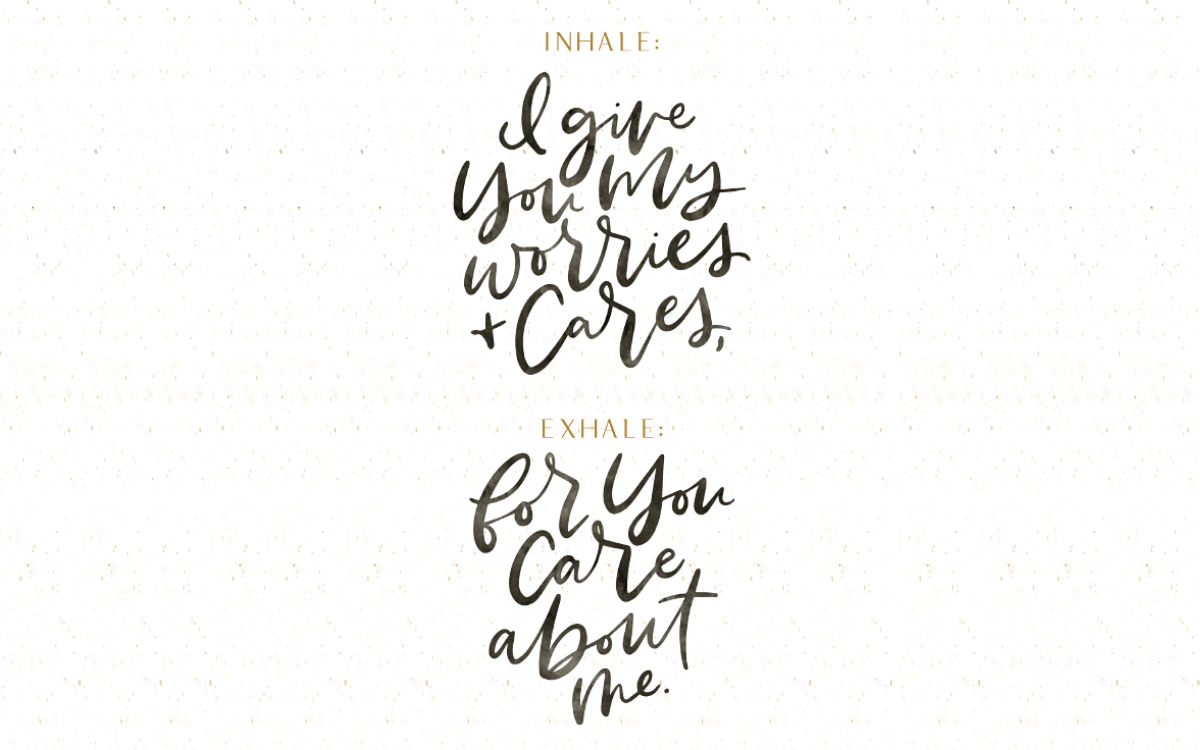 INHALE:
I give
You my
worries
+ Cares,
EXHALE:
for You
Care
about
me.